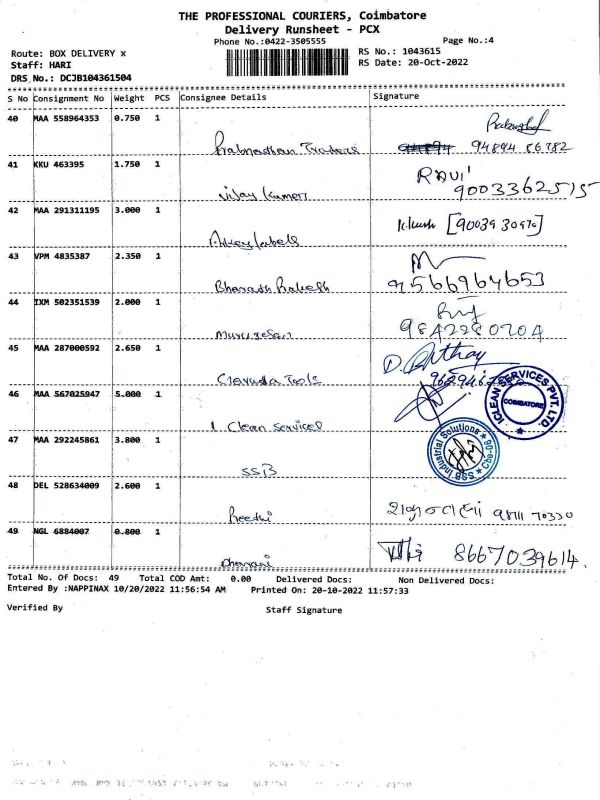 THE PROFESSIONAL COURIERS, Coimbatore
Delivery Runsheet - PCX
Phone No.:0422-3505555 Page No.:4
Route: BOX DELIVERY x RS No.: 1043615
Staff: HARI RS Date: 20-Oct-2022
DRS No.: DCJB104361504
S No Consignment No Weight PCS Consignee Details Signature
40 MAA 558964353 0.750 1
Traders 94894 86782
41 KKU 463395 1.750 1 RAVI
Vijay Kumar 9003362515
42 MAA 291311195 3.000 1 [90039 30970]
labels
43 VPM 4835387 2.350 1
Bharath Rakesh 9566964653
44 IXM 502351539 2.000 1
Murugesan 9842280704
45 MAA 287000592 2.650 1 D.
Garuda Tools
46 MAA 567025947 5.000 1 ICLEAN SERVICES PVT. LTD COIMBATORE
I Clean Services
47 MAA 292245861 3.800 1 BSS Industrial Solutions
SSB
48 DEL 528634009 2.600 1
Preethi
49 NGL 6884007 0.800 1 8667039614
Dharani
Total No. Of Docs: 49 Total COD Amt: 0.00 Delivered Docs: Non Delivered Docs:
Entered By :NAPPINAX 10/20/2022 11:56:54 AM Printed On: 20-10-2022 11:57:33
Verified By Staff Signature